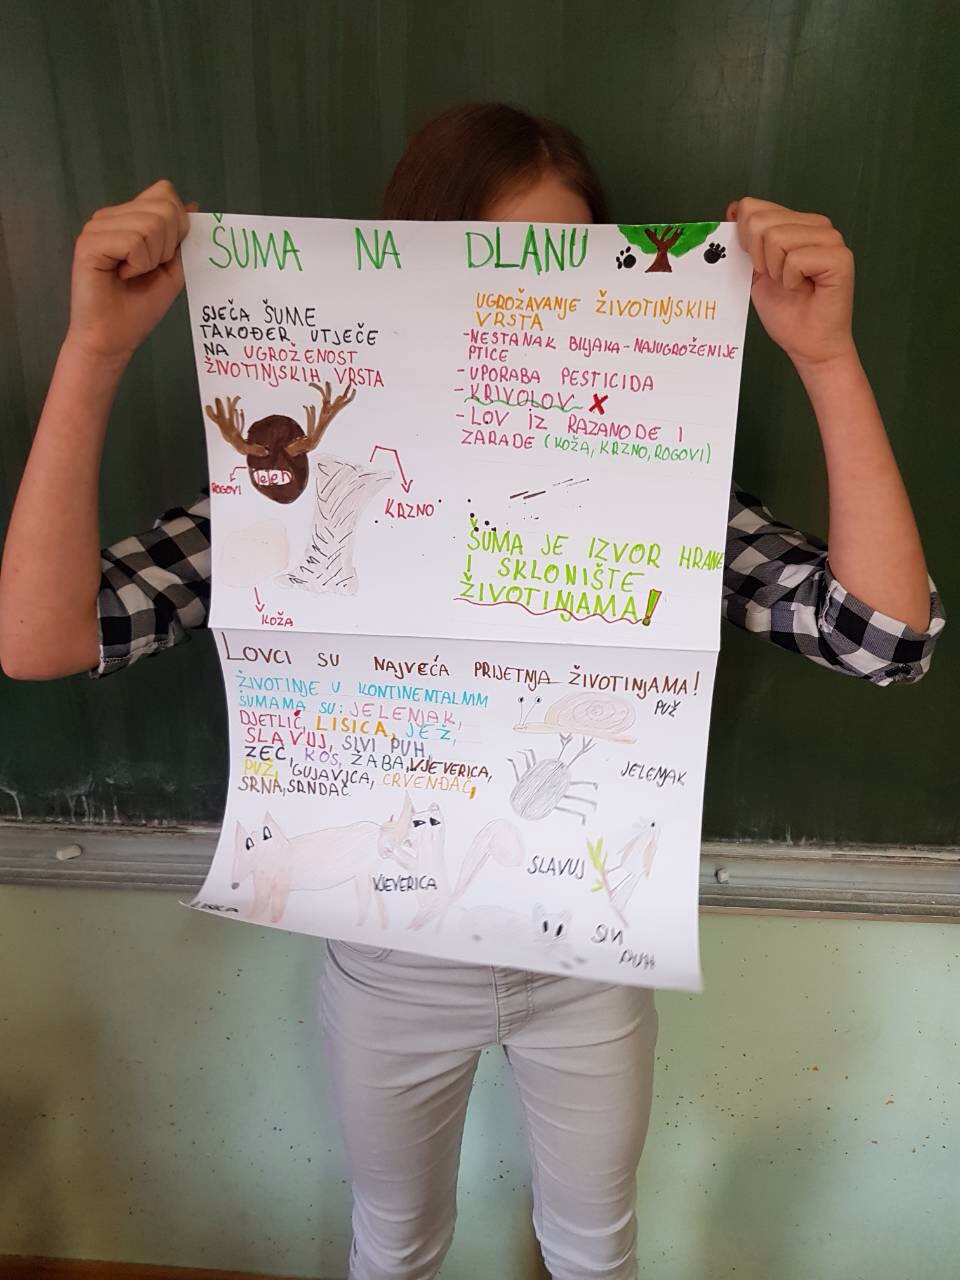 ŠUMA NA DLANU
SJEČA ŠUME
TAKOĐER UTJEČE
NA UGROŽENOST
ŽIVOTINJSKIH VRSTA
ROGOVI
jelen
KRZNO
KOŽA
UGROŽAVANJE ŽIVOTINJSKIH
VRSTA
-NESTANAK BILJAKA-NAJUGROŽENIJE
PTICE
-UPORABA PESTICIDA
-KRIVOLOV X
-LOV IZ RAZANODE I
ZARADE (KOŽA, KRZNO, ROGOVI)
ŠUMA JE IZVOR HRANE
I SKLONIŠTE
ŽIVOTINJAMA!
LOVCI SU NAJVEĆA PRIJETNJA ŽIVOTINJAMA!
ŽIVOTINJE U KONTINENTALNIM
ŠUMAMA SU: JELENJAK,
DJETLIĆ, LISICA, JEŽ,
SLAVUJ, SIVI PUH,
ZEC, KOS, ŽABA, VJEVERICA,
PUŽ, GUJAVICA, CRVENDAĆ,
SRNA, SRNDAĆ
PUŽ
JELENJAK
SLAVUJ
VJEVERICA
LISICA
SIVI
PUH